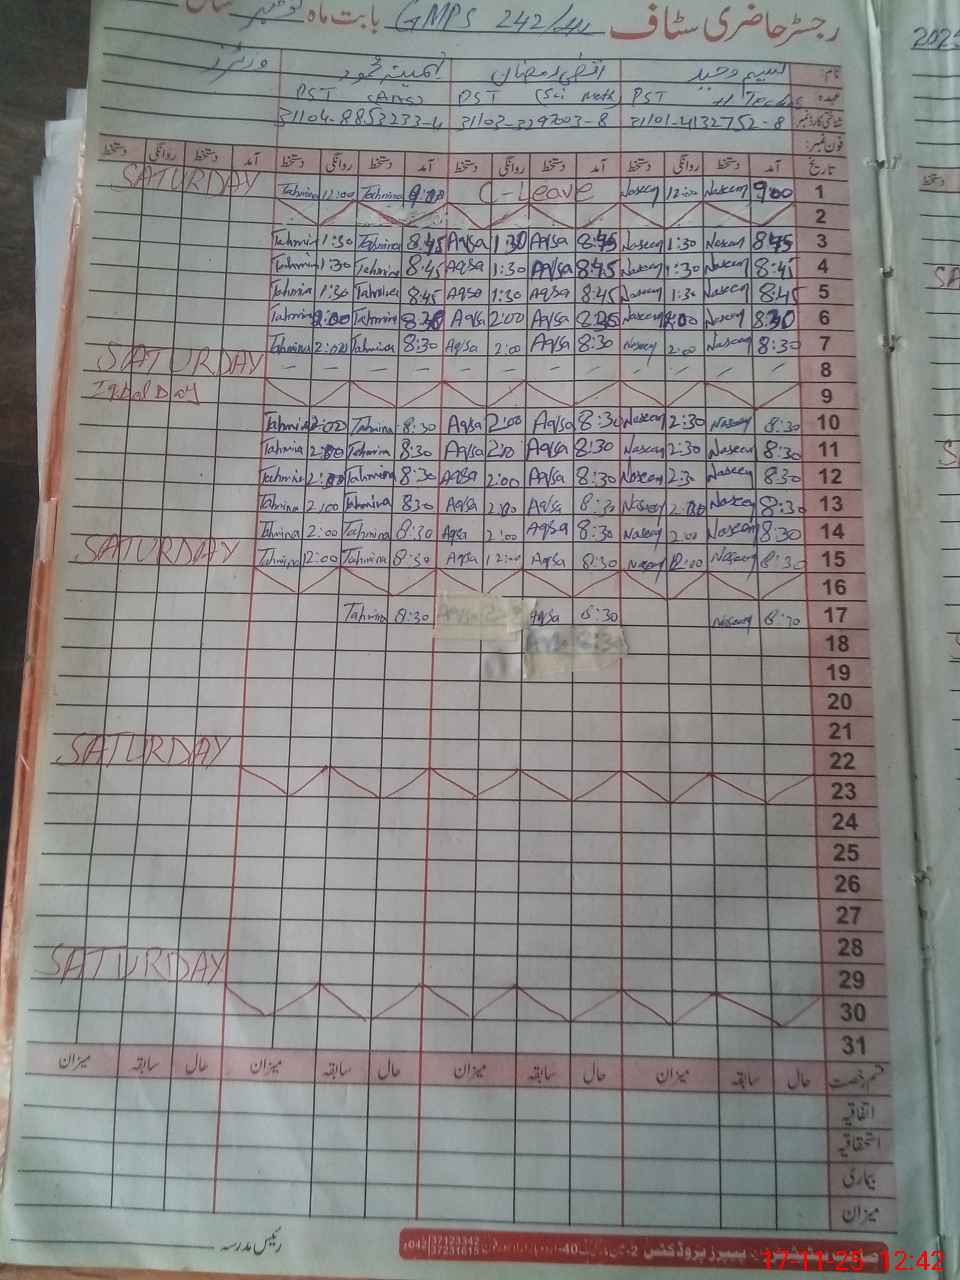 رجسٹر حاضری سٹاف GMPS 242/ بابت ماہ نومبر
2025
نام: نسیم وحید اقصیٰ رمضان تہمینہ محمود
عہدہ PST H Teacher PST (Sci Math) PST (Arts)
شناختی کارڈ نمبر 31101-4132752-8 31103-3297003-8 31104-8853233-4
فون نمبر:
تاریخ آمد دستخط روانگی دستخط آمد دستخط روانگی دستخط آمد دستخط روانگی دستخط آمد دستخط روانگی دستخط
SATURDAY Tahmina 12:00 Tahmina 9:00 C-Leave Naseem 12:00 Naseem 9:00 1
2
Tahmina 1:30 Tahmina 8:45 Aqsa 1:30 Aqsa 8:45 Naseem 1:30 Naseem 8:45 3
Tahmina 1:30 Tahmina 8:45 Aqsa 1:30 Aqsa 8:45 Naseem 1:30 Naseem 8:45 4
Tahmina 1:30 Tahmina 8:45 Aqsa 1:30 Aqsa 8:45 Naseem 1:30 Naseem 8:45 5
Tahmina 2:00 Tahmina 8:30 Aqsa 2:00 Aqsa Naseem 2:00 Naseem 8:30 6
Tahmina 2:00 Tahmina 8:30 Aqsa 2:00 Aqsa 8:30 Naseem 2:00 Naseem 8:30 7
SATURDAY – – – – – – – – – – – – 8
Iqbal Day 9
Tahmina 2:00 Tahmina 8:30 Aqsa 2:00 Aqsa 8:30 Naseem 2:30 Naseem 8:30 10
Tahmina 2:00 Tahmina 8:30 Aqsa 2:00 Aqsa 8:30 Naseem 2:30 Naseem 8:30 11
Tahmina 2:00 Tahmina 8:30 Aqsa 2:00 Aqsa 8:30 Naseem 2:30 Naseem 8:30 12
Tahmina 2:00 Tahmina 8:30 Aqsa 2:00 Aqsa 8:30 Naseem 2:00 Naseem 8:30 13
Tahmina 2:00 Tahmina 8:30 Aqsa 2:00 Aqsa 8:30 Naseem 2:00 Naseem 8:30 14
SATURDAY Tahmina 12:00 Tahmina 8:30 Aqsa 12:00 Aqsa 8:30 Naseem 12:00 Naseem 8:30 15
16
Tahmina 8:30 Aqsa 8:30 Naseem 8:30 17
18
19
20
21
SATURDAY 22
23
24
25
26
27
28
SATURDAY 29
30
31
قسم رخصت حال سابقہ میزان حال سابقہ میزان حال سابقہ میزان حال سابقہ میزان
اتفاقیہ
استحقاقیہ
بیماری
میزان
رئیس مدرسہ
042 37123342 37231615
17-11-25 12:42